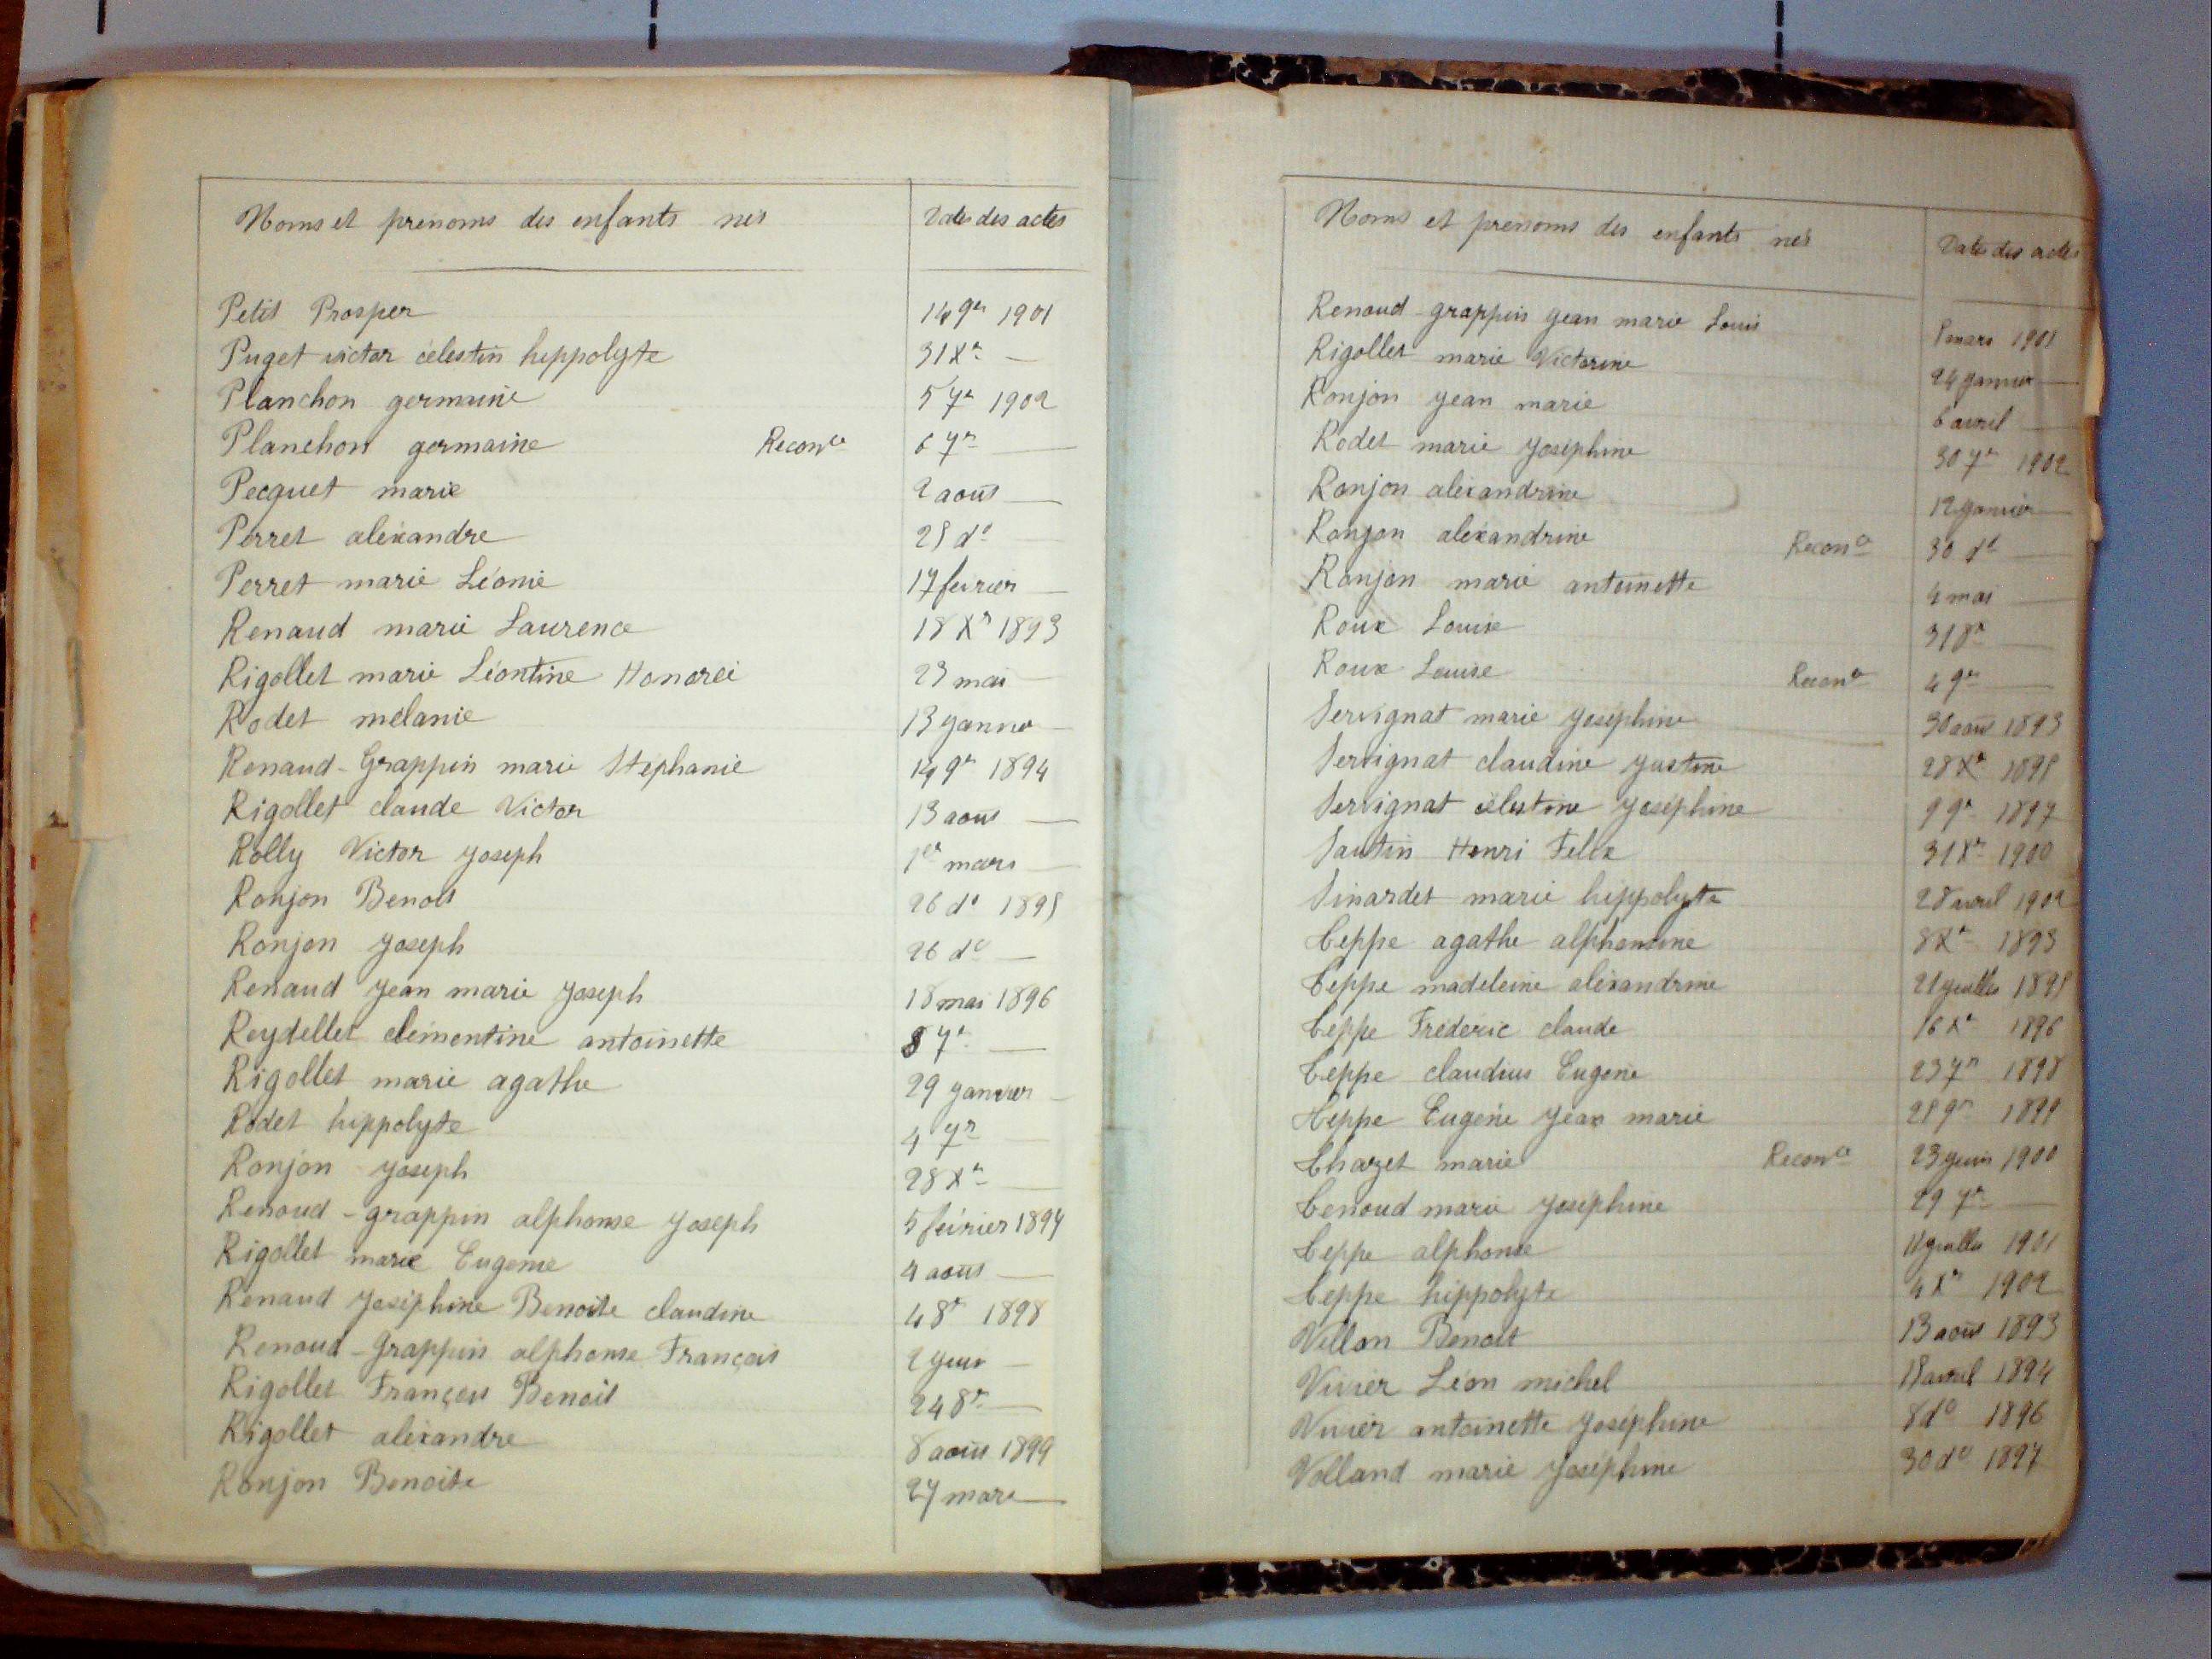 Noms et prénoms des enfants nés Dates des actes
Petit Prosper 14 9re 1901
Puget victor célestin hippolyte 31 Xre —
Planchon germaine 5 7re 1902
Planchon germaine Reconce 6 7re —
Pecquet marie 2 août —
Perret aléxandre 25 do —
Perret marie Léonie 17 février —
Renaud marie Laurence 18 Xre 1893
Rigollet marie Léontine Honorée 23 mai —
Rodet mélanie 13 janvier —
Renaud-Grappin marie Stéphanie 14 9re 1894
Rigollet claude Victor 13 août —
Rolly Victor joseph 1er mars —
Ronjon Benoit 26 do 1895
Ronjon joseph 26 do —
Renaud jean marie joseph 18 mai 1896
Reydellet clémentine antoinette 8 7re —
Rigollet marie agathe 29 janvier —
Rodet hippolyte 4 7re —
Ronjon joseph 28 Xre —
Renoud-grappin alphonse joseph 5 février 1897
Rigollet marie Eugénie 4 août —
Renaud joséphine Benoite claudine 4 8re 1898
Renoud-Grappin alphonse François 2 juin —
Rigollet François Benoit 24 8re —
Rigollet aléxandre 8 août 1899
Ronjon Benoite 27 mars —
Noms et prénoms des enfants nés Dates des actes
Renoud-grappin jean marie Louis mars 1901
Rigollet marie Victorine 24 janvier —
Ronjon jean marie 6 avril —
Rodet marie joséphine 30 7re 1902
Ronjon aléxandrine 12 janvier —
Ronjon aléxandrine Reconce 30 do —
Ronjon marie antoinette 4 mai —
Roux Louise 31 8re —
Roux Louise Reconce 4 9re —
Servignat marie joséphine 30 août 1893
Servignat claudine justine 28 Xre 1895
Servignat célestine joséphine 9 9re 1897
Sautin Henri Felix 31 Xre 1900
Sinardet marie hippolyte 28 avril 1902
Teppe agathe alphonsine 8 Xre 1893
Teppe madeleine aléxandrine 21 juillet 1895
Teppe Frédéric claude 16 Xre 1896
Teppe claudius Eugène 23 7re 1898
Teppe Eugénie jean marie 25 9re 1899
Thazet marie Reconce 23 juin 1900
Tenoud marie joséphine 29 7re —
Teppe alphonse 11 juillet 1901
Teppe hippolyte 4 Xre 1902
Villon Benoit 13 août 1893
Vivier Léon michel 18 avril 1894
Vivier antoinette joséphine 8 do 1896
Volland marie joséphine 30 do 1897